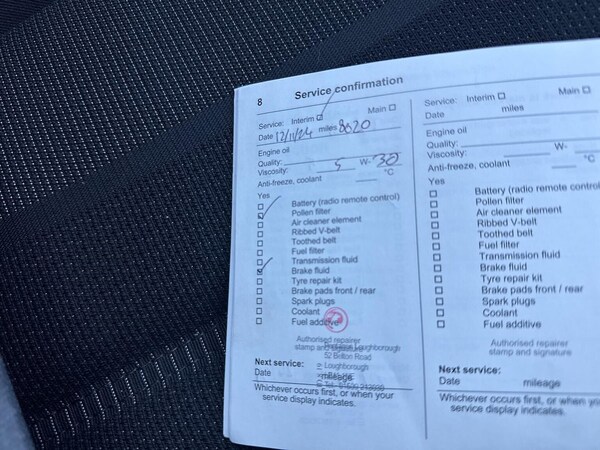 8 Service confirmation
Service: Interim Main
Date 12/11/24 miles 8620
Engine oil
Quality:
Viscosity: 5 W- 30
Anti-freeze, coolant °C
Yes
Battery (radio remote control)
Pollen filter
Air cleaner element
Ribbed V-belt
Toothed belt
Fuel filter
Transmission fluid
Brake fluid
Tyre repair kit
Brake pads front / rear
Spark plugs
Coolant
Fuel additive
Authorised repairer
stamp and signature
Loughborough
52 Britton Road
Loughborough
Next service:
Date mileage
Whichever occurs first, or when your
service display indicates.
Service: Interim Main
Date miles
Engine oil
Quality:
Viscosity: W-
Anti-freeze, coolant °C
Yes
Battery (radio remote control)
Pollen filter
Air cleaner element
Ribbed V-belt
Toothed belt
Fuel filter
Transmission fluid
Brake fluid
Tyre repair kit
Brake pads front / rear
Spark plugs
Coolant
Fuel additive
Authorised repairer
stamp and signature
Next service:
Date mileage
Whichever occurs first, or when
service display indicates.